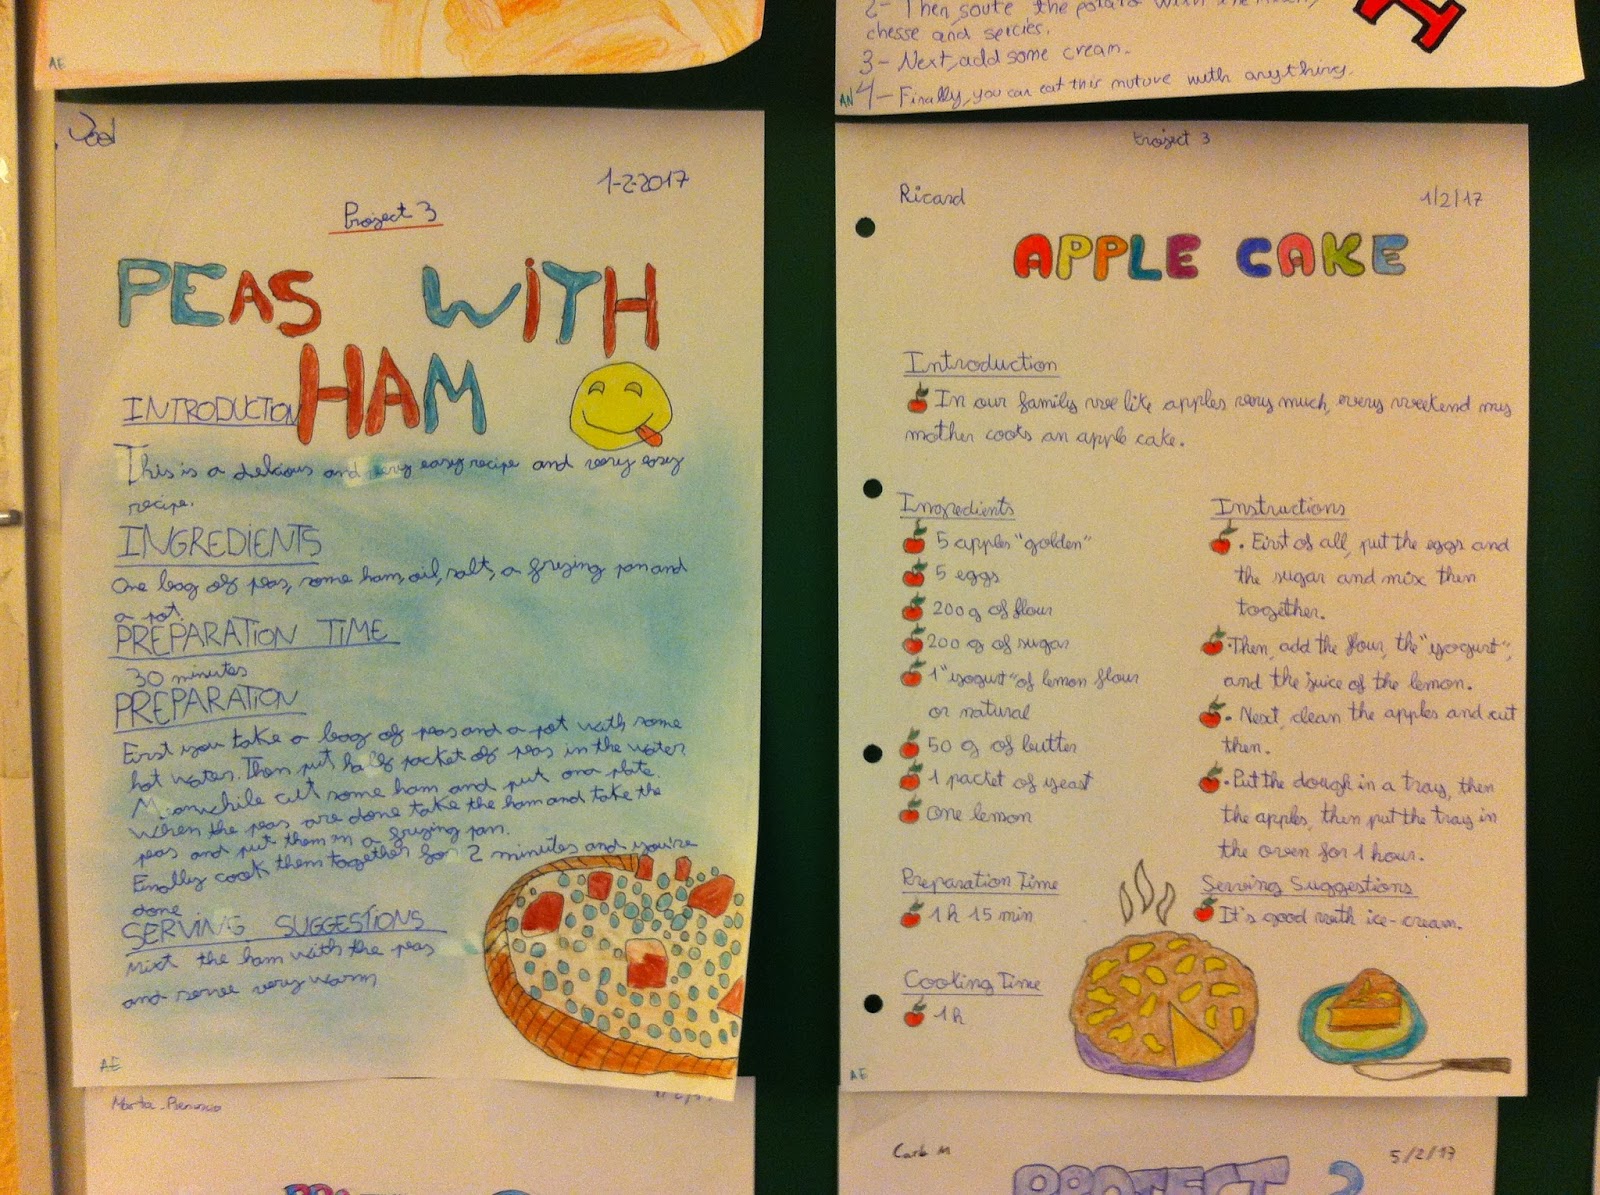 AE
2- Then, soute the potato with the
chesse and spicies.
3- Next, add some cream.
AN 4- Finally, you can eat this mixture with anything.
Joel
1-2-2017
Project 3
PEAS WITH
HAM
INTRODUCTION
This is a delicious and very easy recipe and very easy
recipe.
INGREDIENTS
One bag of peas, some ham, oil, salt, a frizing pan and
a pot.
PREPARATION TIME
30 minutes
PREPARATION
First you take a bag of peas and a pot with some
hot water. Then put half packet of peas in the water.
Meanwhile cut some ham and put on a plate.
When the peas are done take the ham and take the
peas and put them in a frizing pan.
Finally cook them together for 2 minutes and you're
done
SERVING SUGGESTIONS
Mixt the ham with the peas
and serve very warm
AE
Project 3
Ricard
1/2/17
APPLE CAKE
Introduction
In our family we like apples very much, every weekend my
mother cooks an apple cake.
Ingredients
5 apples "golden"
5 eggs
200 g of flour
200 g of sugar
1 "yogurt" of lemon flour
or natural
50 g of butter
1 packet of yeast
One lemon
Preparation Time
1 h 15 min
Cooking Time
1 h
Instructions
• First of all, put the eggs and
the sugar and mix then
together.
• Then, add the flour, the "yogurt",
and the juice of the lemon.
• Next, clean the apples and cut
then.
• Put the dough in a tray, then
the apples, then put the tray in
the oven for 1 hour.
Serving Suggestions
It's good with ice-cream.
AE
Marta
Carla M
5/2/17
PROJECT 3